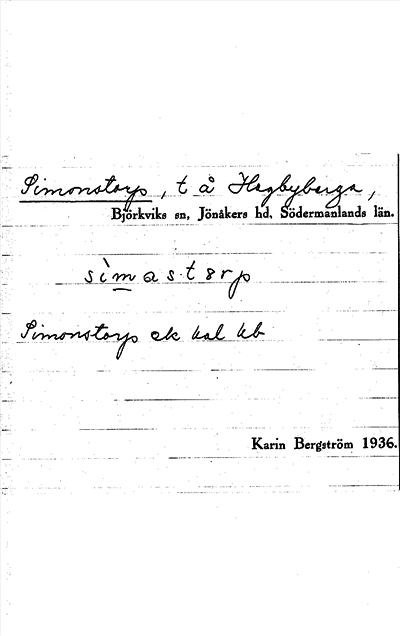 Simonstorp, t å Hagbyberga,
Björkviks sn, Jönåkers hd, Södermanlands län.
sìmast8rp
Simonstorp ek kal kb
Karin Bergström 1936.